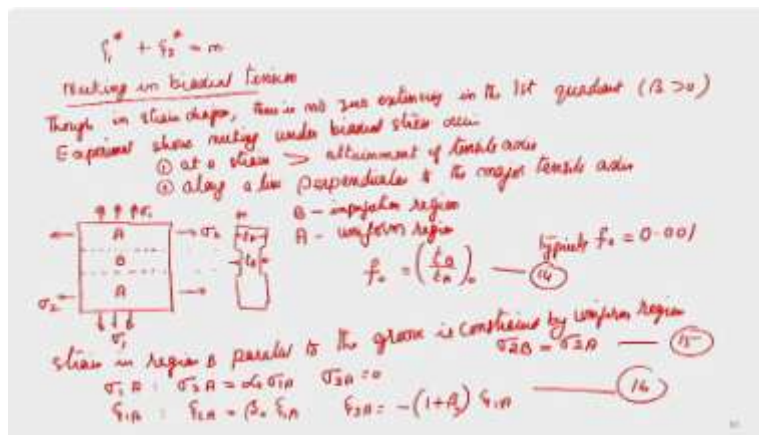 ε₁* + ε₂* = n
Necking in biaxial tension
Though in strain shapes, there is no zero extension in the 1st quadrant (β > 0)
Experiment show necking under biaxial stress
① at a strain > attainment of tensile axis
② along a line perpendicular to the major tensile axis
B - region
A - uniform region
σ₁
A
B
A
σ₂
σ₂
σ₁
f₀ = (t_B / t_A)₀ — (14)
typically f₀ = 0.001
strain in region B parallel to the groove is constrained by uniform region
σ₂B = σ₂A — (15)
σ₁A : σ₂A = α₀ σ₁A σ₃A = 0
ε₁A : ε₂A = β₀ ε₁A ε₃A = -(1+β) ε₁A — (16)